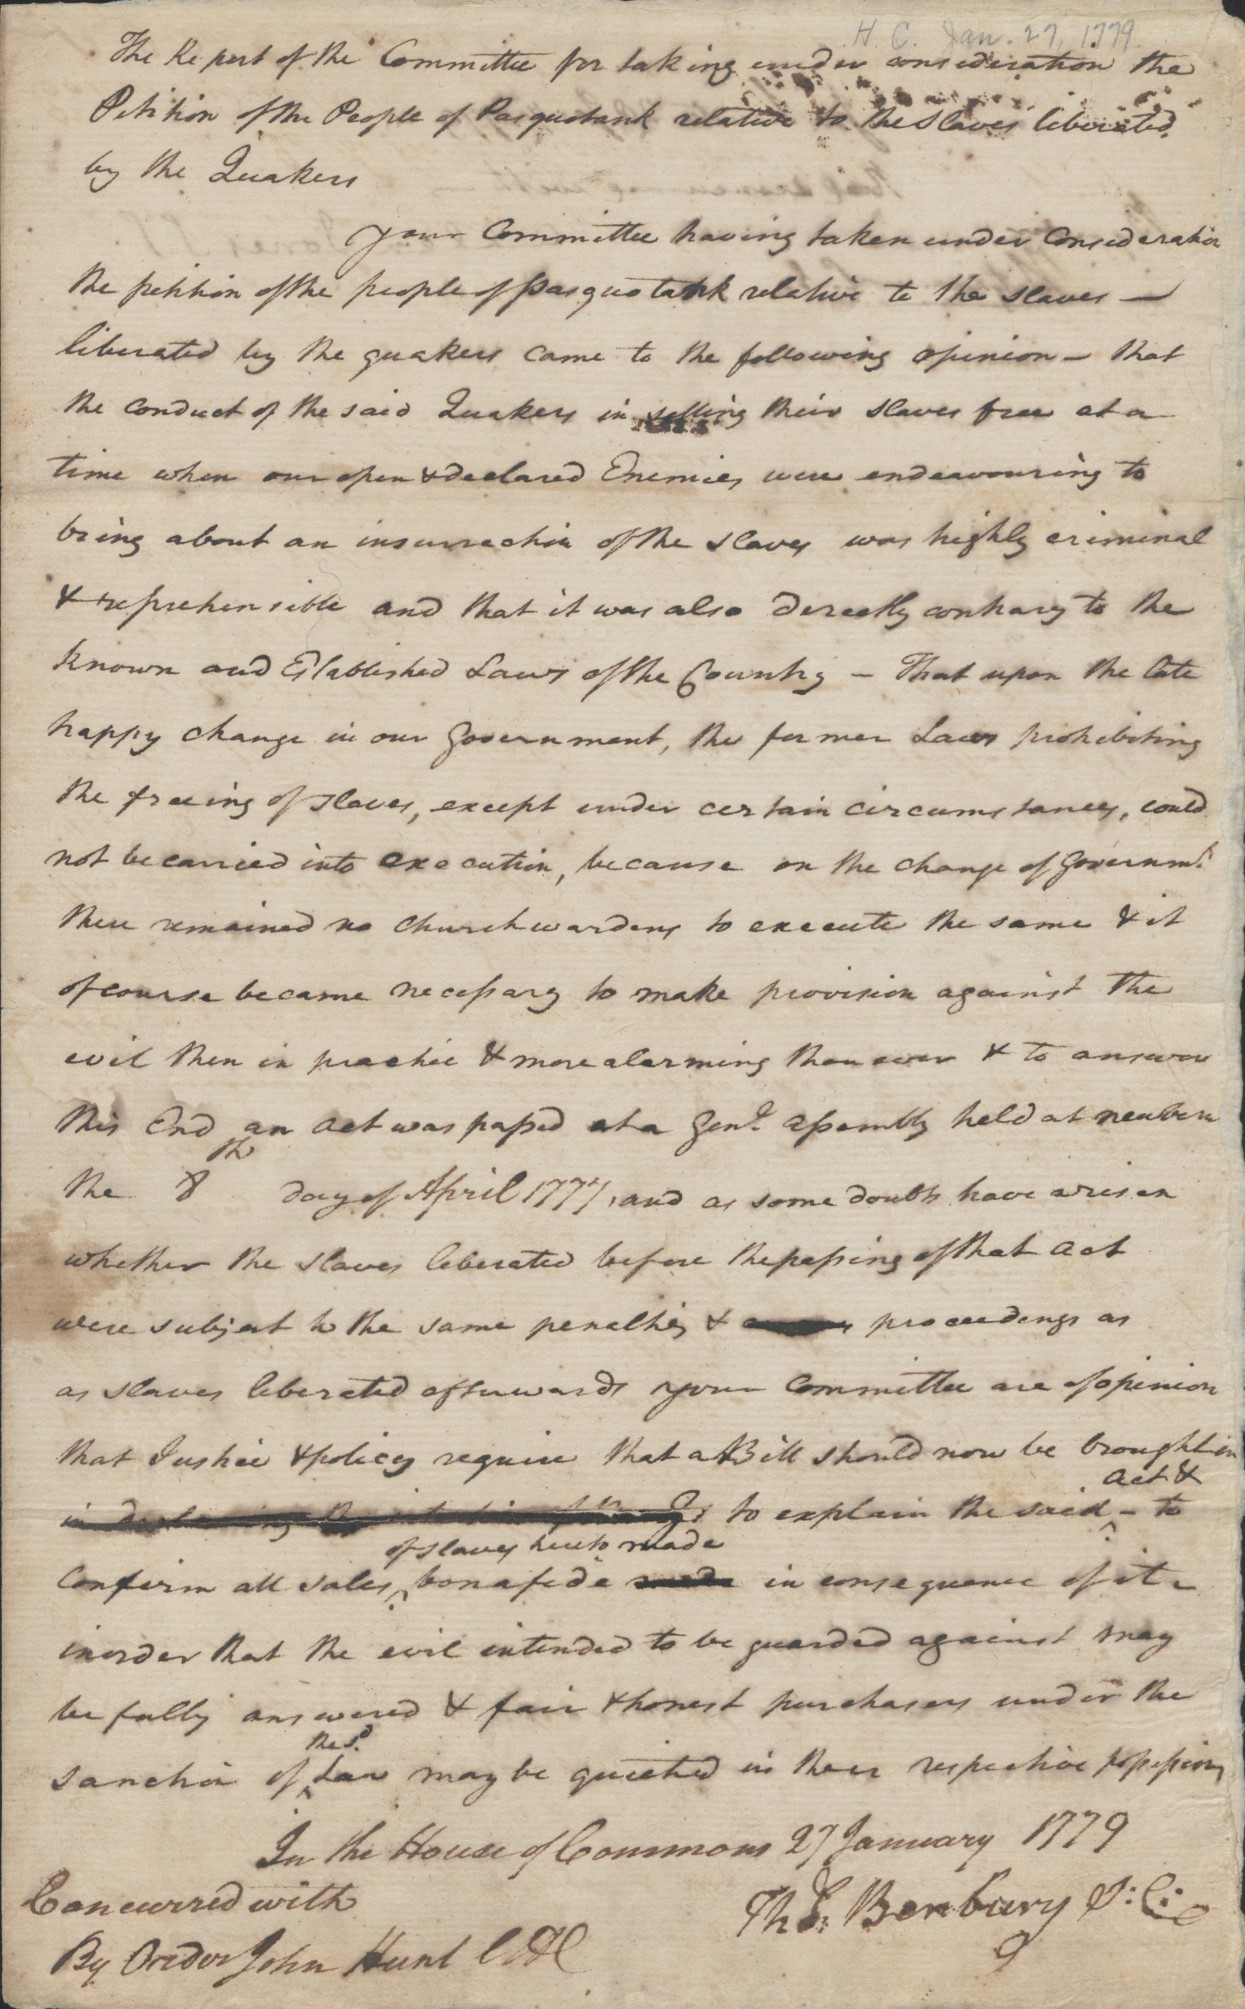 H. C. Jan. 27, 1779
The Report of the Committee for taking under consideration the
Petition of the People of Pasquotank relative to the Slaves liberated
by the Quakers
your Committee having taken under Consideration
the petition of the people of Pasquotank relative to the slaves —
liberated by the quakers came to the following opinion — that
the conduct of the said Quakers in setting their slaves free at a
time when our open & declared Enemies were endeavouring to
bring about an insurrection of the slaves was highly criminal
& reprehensible and that it was also derectly contrary to the
known and Established Laws of the Country — That upon the late
happy change in our Government, the former Laws prohibiting
the freeing of slaves, except under certain circumstances, could
not be carried into execution, because on the change of Governmt.
there remained no Churchwardens to execute the same & it
of course became necessary to make provision against the
evil then in practice & more alarming than ever & to answer
this End an act was passed at a Genl. assembly held at newbern
the 8th day of April 1777, and as some doubts have arisen
whether the slaves liberated before the passing of that act
were subject to the same penalties & proceedings as
as slaves liberated afterwards your Committee are of opinion
that Justice & policy require that a Bill should now be brought in
act &
to explain the said - to
of slaves hereto made
Confirm all sales bonafide made in consequence of it -
inorder that the evil intended to be guarded against may
be fully answered & fair & honest purchasers under the
the sd.
sanction of Law may be quieted in their respective possessions
In the House of Commons 27 January 1779
Concurred with
Ths. Benbury S: C:
By Order John Hunt CHC